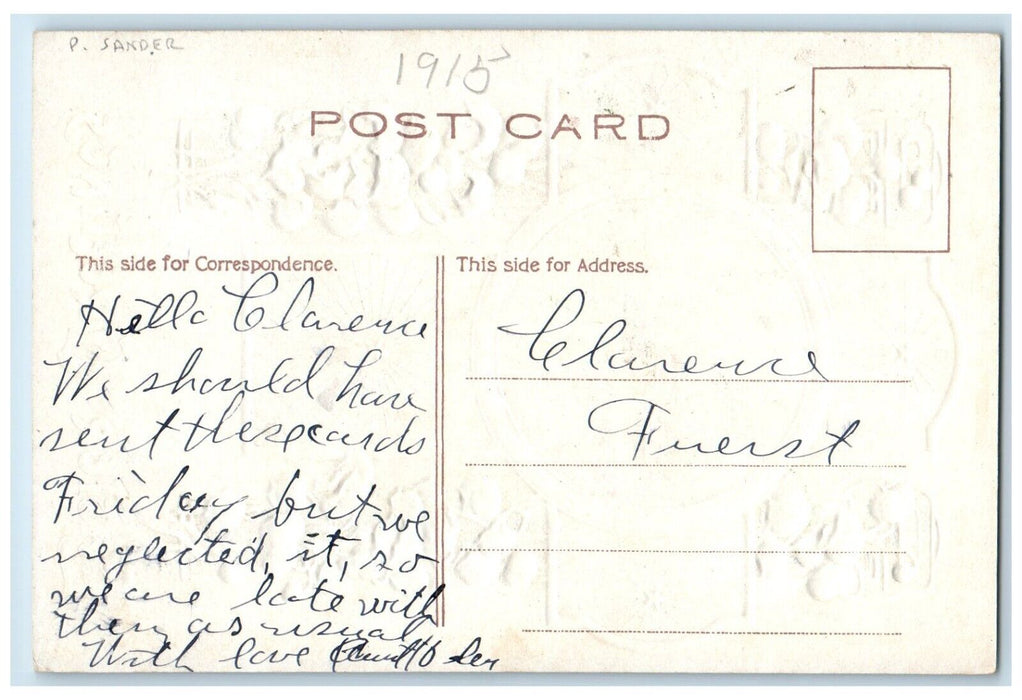 P. SANDER
1915
POST CARD
This side for Correspondence.
Hello Clarence
We should have
sent these cards
Friday but we
neglected, it, so
we are late with
them as usual
With love
This side for Address.
Clarence
Fuerst